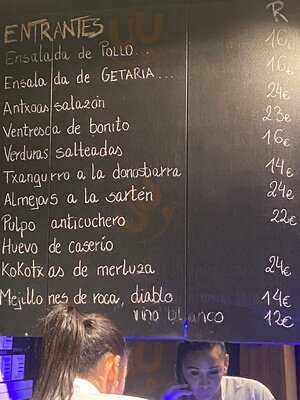 ENTRANTES R
Ensalada de POLLO... 16€
Ensalada de GETARIA... 16€
Antxoas salazón 24€
Ventresca de bonito 23€
Verduras salteadas 16€
Txangurro a la donostiarra 14€
Almejas a la sartén 24€
Pulpo anticuchero 22€
Huevo de caserío
KoKotxas de merluza 24€
Mejillones de roca, diablo 14€
vino blanco 12€